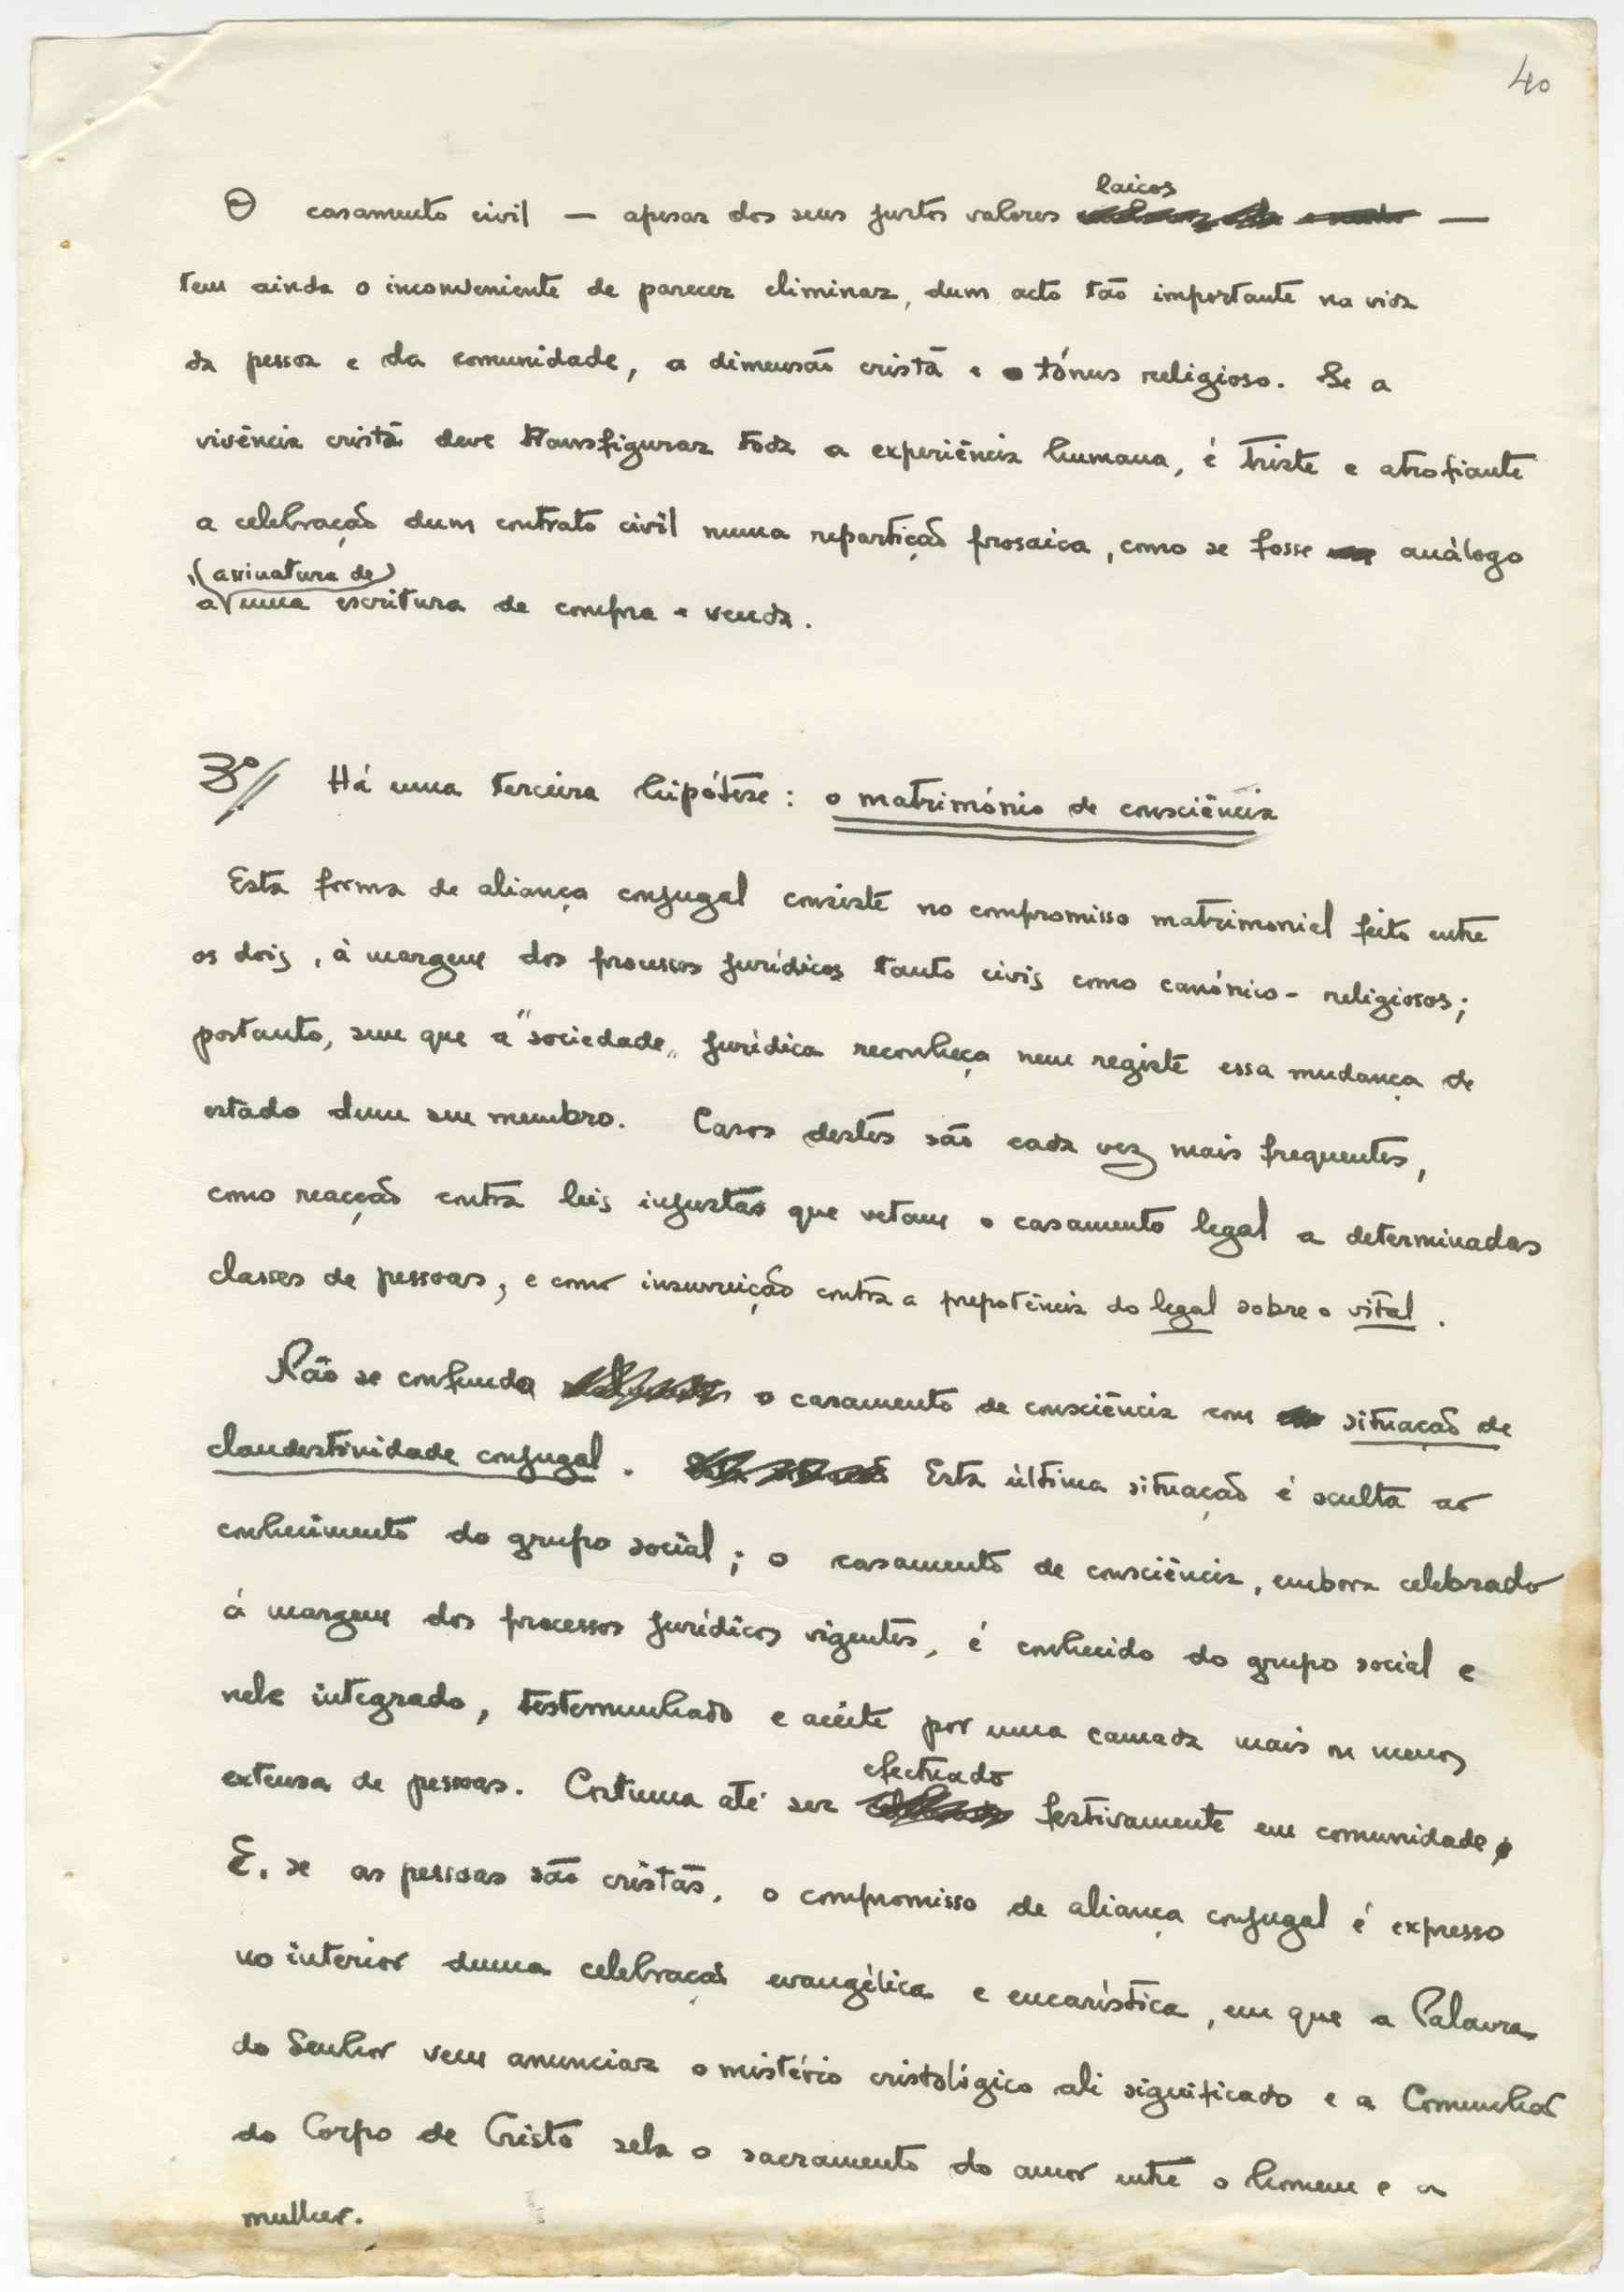 40
O casamento civil — apesar dos seus justos valores laicos —
tem ainda o inconveniente de parecer eliminar, dum acto tão importante na vida
da pessoa e da comunidade, a dimensão cristã e o tónus religioso. Se a
vivência cristã deve transfigurar toda a experiência humana, é triste e atrofiante
a celebração dum contrato civil numa repartição prosaica, como se fosse análogo
(assinatura de)
a uma escritura de compra e venda.
3º// Há uma terceira hipótese: o matrimónio de consciência
Esta forma de aliança conjugal consiste no compromisso matrimonial feito entre
os dois, à margem dos processos jurídicos tanto civis como canónico-religiosos;
portanto, sem que a "sociedade" jurídica reconheça nem registe essa mudança de
estado dum seu membro. Casos destes são cada vez mais frequentes,
como reacção contra leis injustas que vetam o casamento legal a determinadas
classes de pessoas, e como insurreição contra a prepotência do legal sobre o vital.
Não se confunda o casamento de consciência com situação de
clandestinidade conjugal. Esta última situação é oculta ao
conhecimento do grupo social; o casamento de consciência, embora celebrado
à margem dos processos jurídicos vigentes, é conhecido do grupo social e
nele integrado, testemunhado e aceite por uma camada mais ou menos
extensa de pessoas. Costuma até ser efectuado festivamente em comunidade.
E, se as pessoas são cristãs, o compromisso de aliança conjugal é expresso
no interior duma celebração evangélica e eucarística, em que a Palavra
do Senhor vem anunciar o mistério cristológico ali significado e a Comunhão
do Corpo de Cristo sela o sacramento do amor entre o homem e a
mulher.